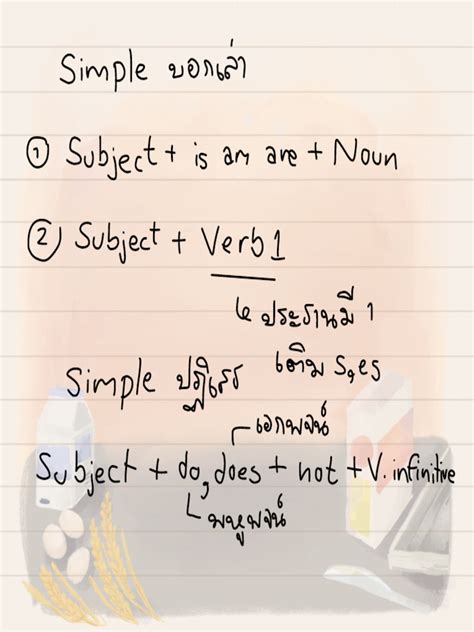 Simple บอกเล่า
① Subject + is am are + Noun
② Subject + Verb1
ประธานมี 1
เติม s,es
Simple ปฏิเสธ
เอกพจน์
Subject + do,does + not + V. infinitive
พหูพจน์